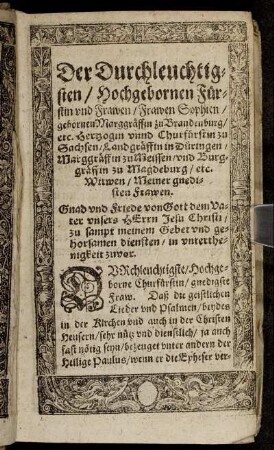 Der Durchleuchtig-
sten / Hochgebornen Für-
stin vnd Frawen / Frawen Sophien /
gebornen Marggräffin zu Brandenburg /
etc. Hertzogin vnnd Churfürstin zu
Sachsen / Landgräffin in Düringen /
Marggräffin zu Meissen / vnd Burg-
gräffin zu Magdeburg / etc.
Witwen / Meiner gnedi-
sten Frawen.
Gnad vnd Friede von Gott dem Va-
ter vnsers HErrn Jesu Christi /
zu sampt meinem Gebet vnd ge-
horsamen diensten / in vnterthe-
nigkeit zuvor.
DVRchleuchtigste / Hochge-
borne Churfürstin / gnedigste
Fraw. Daß die geistlichen
Lieder vnd Psalmen / beydes
in der Kirchen vnd auch in der Christen
Heusern / sehr nütz vnd dienstlich / ja auch
fast nötig seyn / bezeuget vnter andern der
Heilige Paulus / wenn er die Epheser ver-